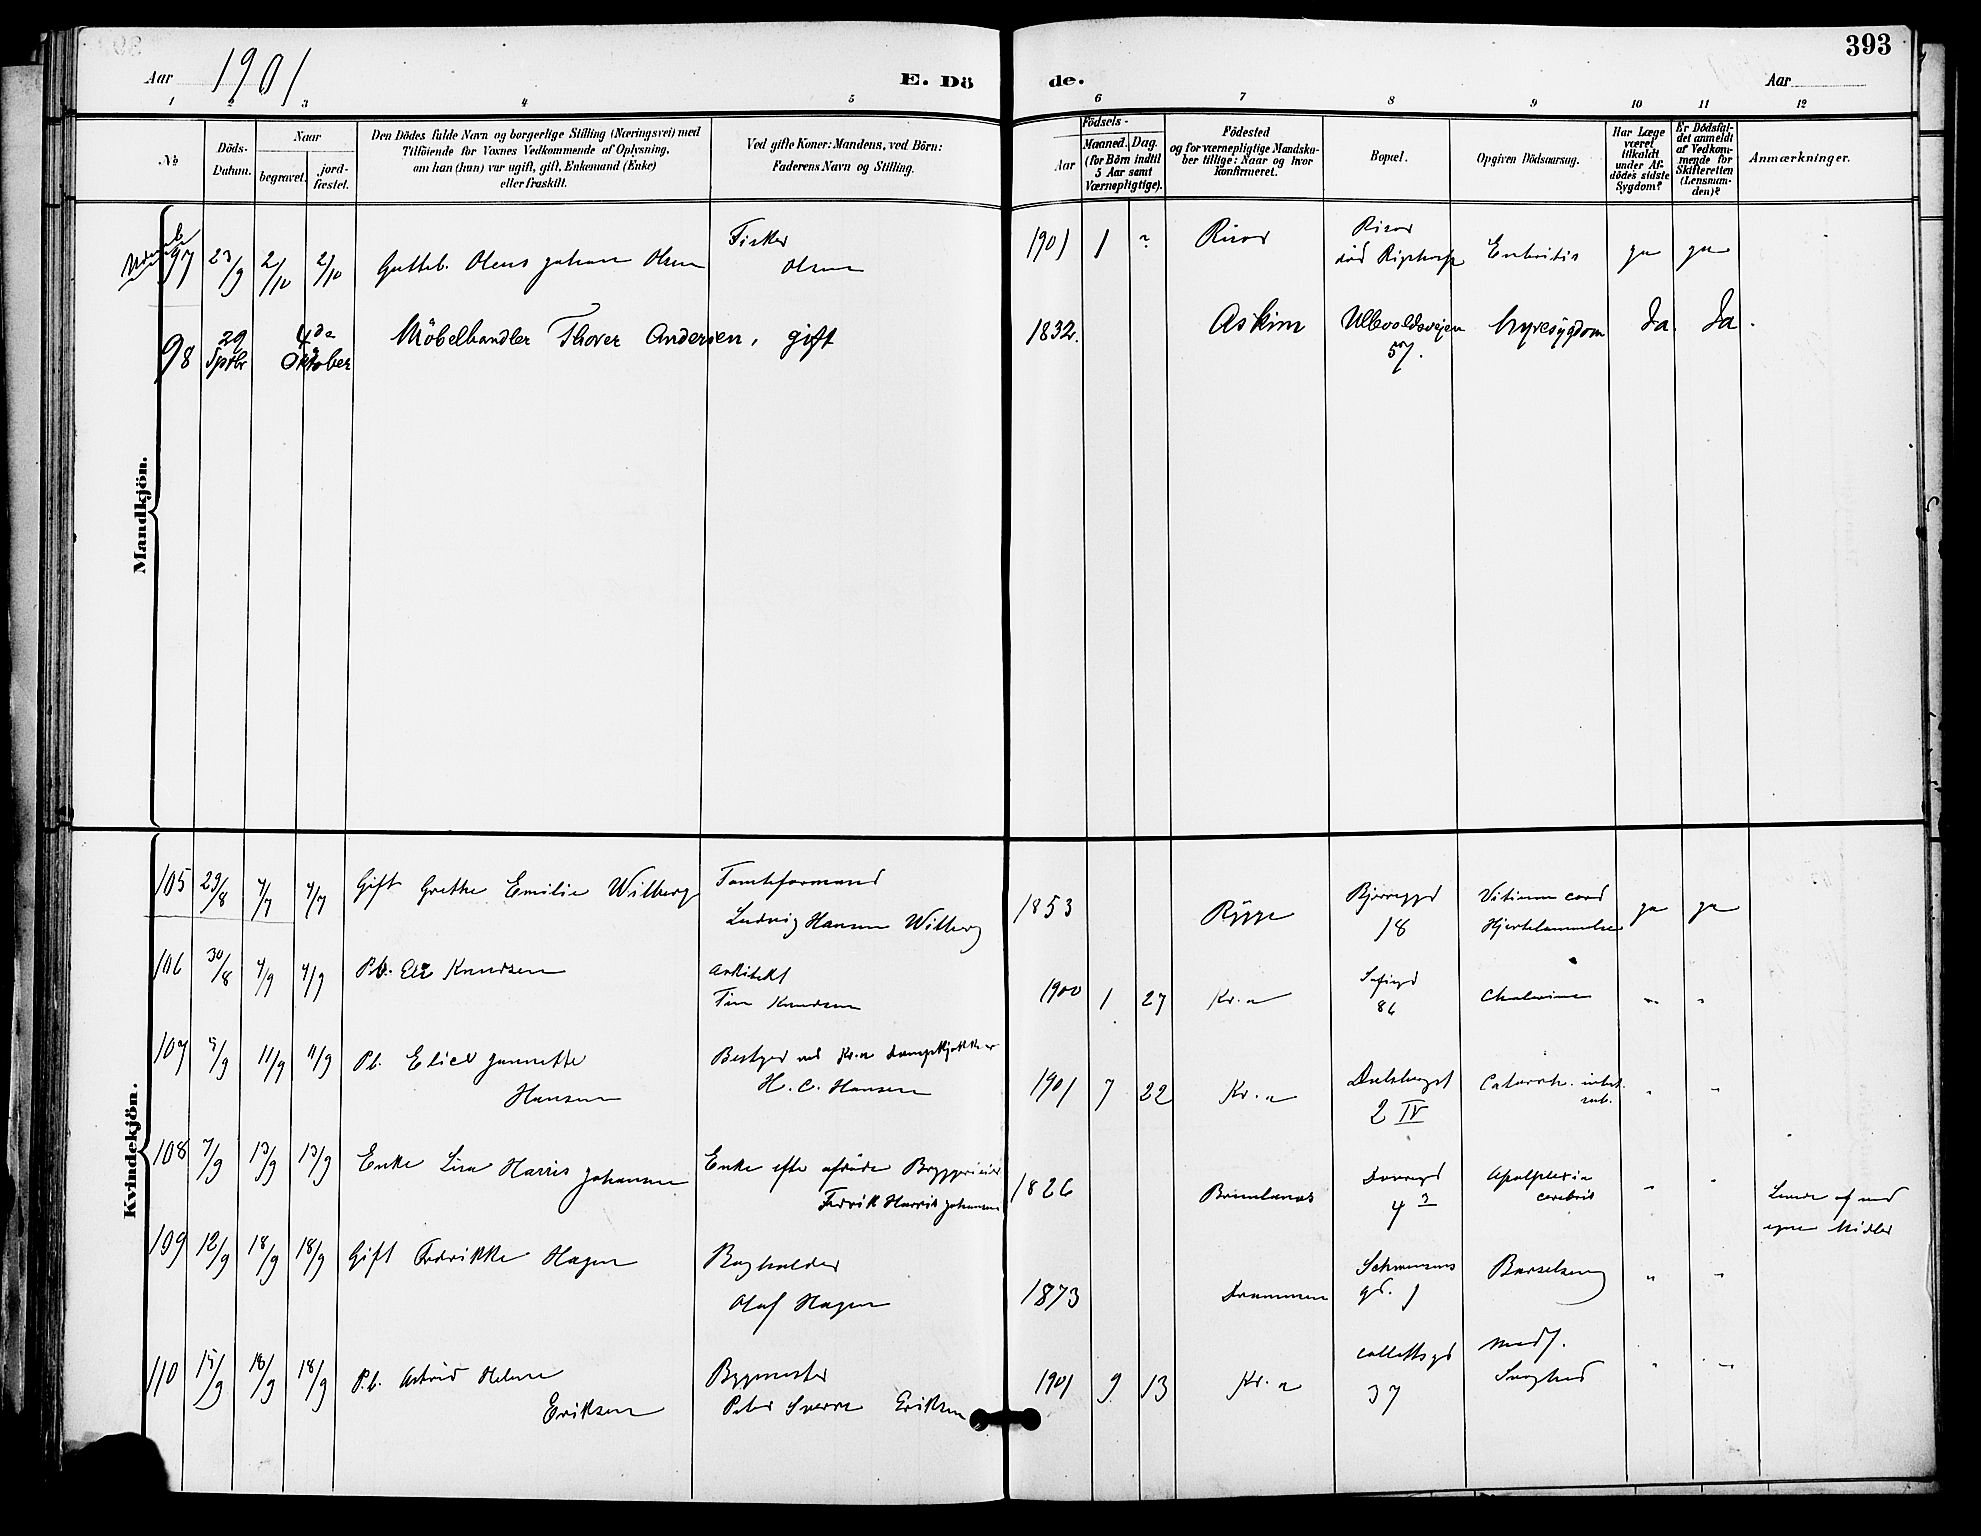 393
Aar 1901
E. Dö
de.
Aar
1 2 3 4 5 6 7 8 9 10 11 12
No
Döds-
Datum.
Naar
begravet.
jord-
fæstet.
Den Dödes fulde Navn og borgerlige Stilling (Næringsvei) med
Tilföiende for Voxnes Vedkommende af Oplysning,
om han (hun) var ugift, gift, Enkemand (Enke)
eller fraskilt.
Ved gifte Koner: Mandens, ved Börn:
Faderens Navn og Stilling.
Födsels-
Aar
Maaned. Dag.
(for Börn indtil
5 Aar samt
Værnepligtige).
Födested
og for værnepligtige Mandska-
ber tillige: Naar og hvor
konfirmeret.
Bopæl.
Opgiven Dödsaarsag.
Har Læge
været
tilkaldt
under Af-
dödes sidste
Sygdom?
Er Dödsfal-
det anmeldt
af Vedkom-
mende for
Skifteretten
(Lensman-
den)?
Anmærkninger.
Mandkjön.
97 23/9 2/10 2/10 Gutteb. Olaus Johan Olsen
Fisker
Olsen
1901 1 Risør
Risør
Enteritis ja ja
98 29 Septbr 4de Oktober Möbelhandler Thorer Andersen, gift 1832. Askim Ullevoldsvejen
57.
Nyresygdom Ja. Ja.
Kvindekjön.
105 29/8 Gift Grethe Emilie Wilberg
Tomteformand
Ludvig Hansen Wilberg
1853 Rygge
18
Vitium cord
Hjertelammelse ja ja
106 30/8 4/9 4/9 P.b. Knudsen
Arkitekt
Knudsen
1900 1 27 Kr.a
Sofiegd
86
Cholerine " "
107 5/9 11/9 11/9 P.b. Jannette
Hansen
Bestyrer ved Kr.a Dampkjøkken
H. C. Hansen
1901 7 22 Kr.a
2 IV
Catarrh. intest.
" "
108 7/9 13/9 13/9 Enke Lisa Harris Johansen
Enke efter afdøde Bryggerieier
Fredrik Harris Johansen
1826 Brunlanæs
4 3
Apoplexia
cerebri
" "
Levede af sine
egne Midler
109 12/9 18/9 18/9 Gift Fredrikke Hagen
Bogholder
Olaf Hagen
1873 Drammen
Schwensens
gd. 1
Barselseng " "
110 15/9 18/9 18/9 P.b. Astrid Helene
Eriksen
Bygmester
Peter Sverre Eriksen
1901 9 13 Kr.a
Collettsgd
37
Medf.
Svaghed
" "